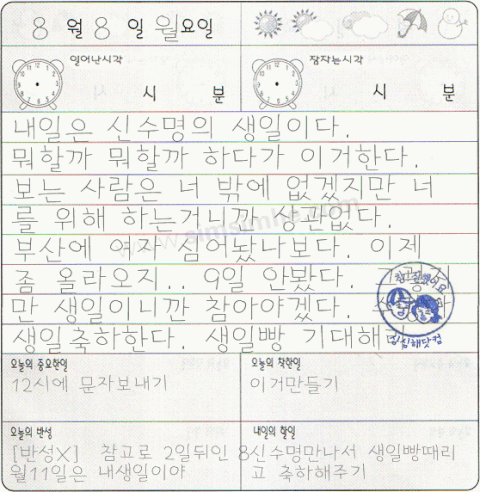 8 월 8 일 월요일
일어난시각
잠자는시각
시 분
시 분
내일은 신수명의 생일이다.
뭐할까 뭐할까 하다가 이거한다.
보는 사람은 너 밖에 없겠지만 너
를 위해 하는거니깐 상관없다.
부산에 여자 심어놨나보다. 이제
좀 올라오지.. 9일 안봤다.
만 생일이니깐 참아야겠다.
생일축하한다. 생일빵 기대해
참 잘했어요
심심해닷컴
오늘의 중요한일
12시에 문자보내기
오늘의 착한일
이거만들기
오늘의 반성
[반성X] 참고로 2일뒤인 8
월11일은 내생일이야
내일의 할일
신수명만나서 생일빵때리
고 축하해주기